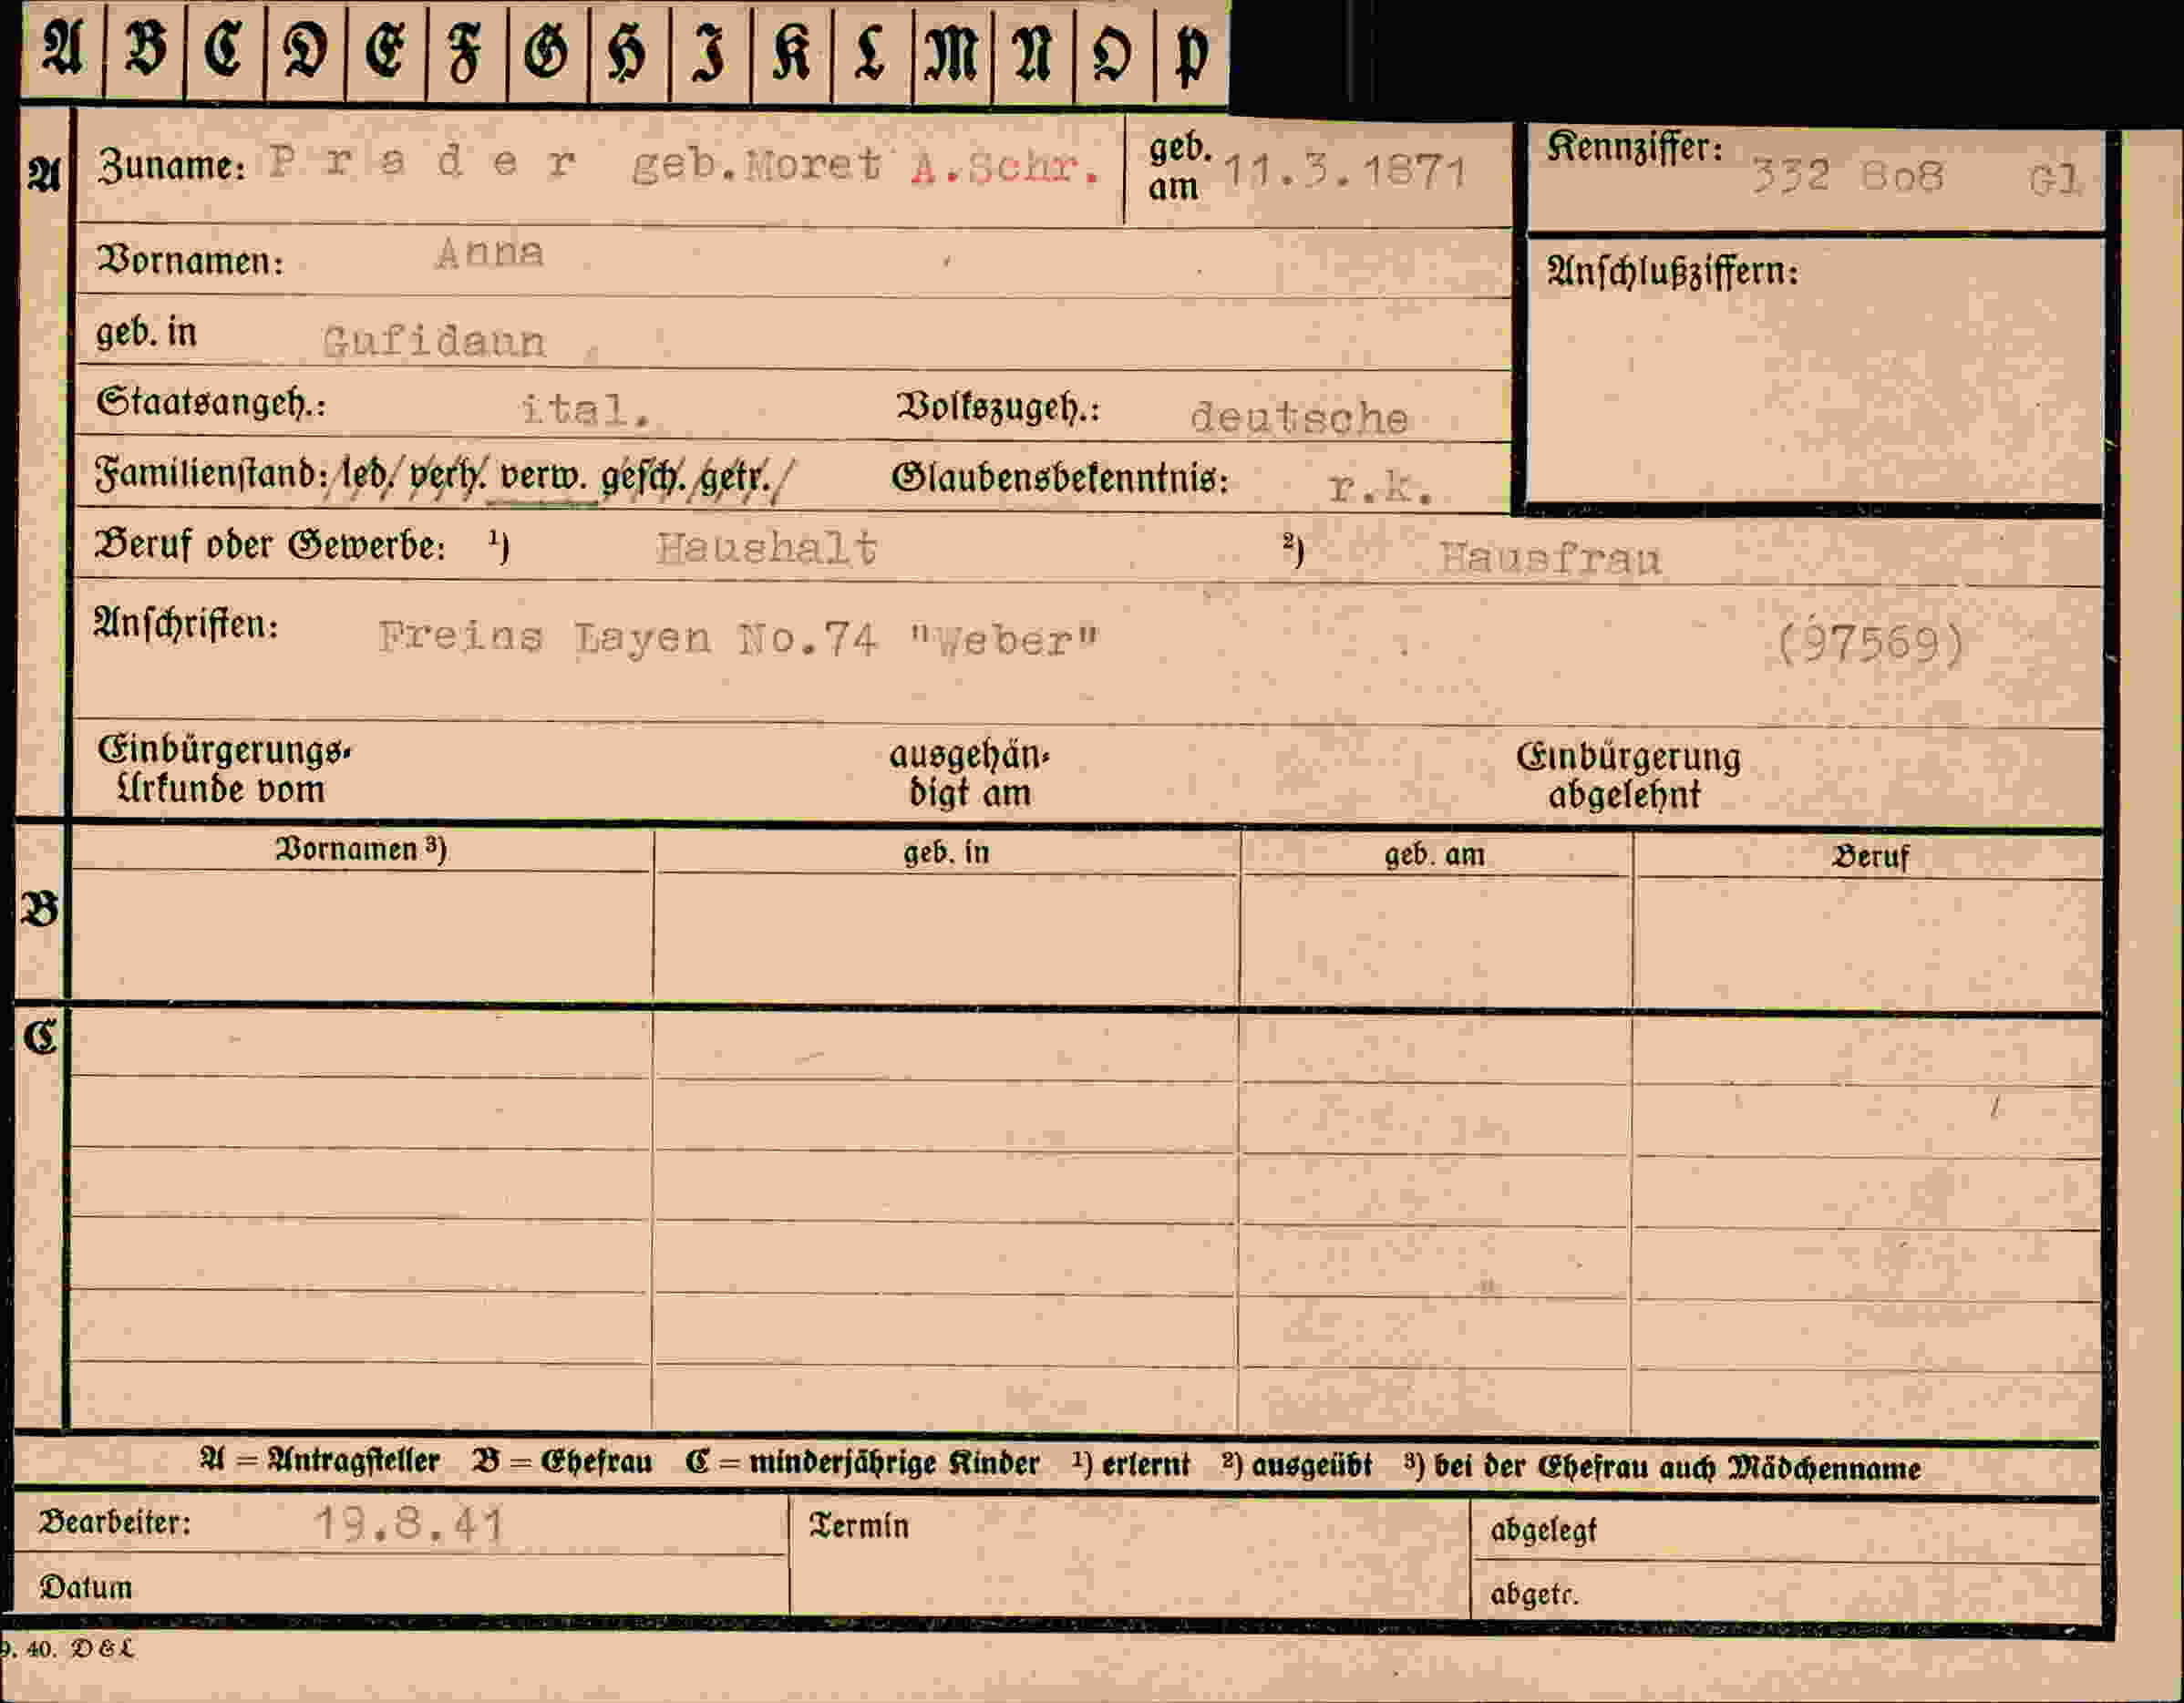 A B C D E F G H I K L M N O P
A Zuname: P r a d e r geb.Moret A.Schr. geb. am 11.3.1871 Kennziffer: 332 8o8 Gl
Vornamen: Anna
Anschlußziffern:
geb. in Gufidaun
Staatsangeh.: ital. Volkszugeh.: deutsche
Familienstand: led. verh. verw. gesch. getr. Glaubensbekenntnis: r.k.
Beruf oder Gewerbe: ¹) Haushalt ²) Hausfrau
Anschriften: Freins Layen No.74 "Weber" (97569)
Einbürgerungs- ausgehän- Einbürgerung
Urkunde vom digt am abgelehnt
Vornamen ³) geb. in geb. am Beruf
B
C
A = Antragsteller B = Ehefrau C = minderjährige Kinder ¹) erlernt ²) ausgeübt ³) bei der Ehefrau auch Mädchenname
Bearbeiter: 19.8.41 Termin abgelegt
Datum abgetr.
9. 40. D & L